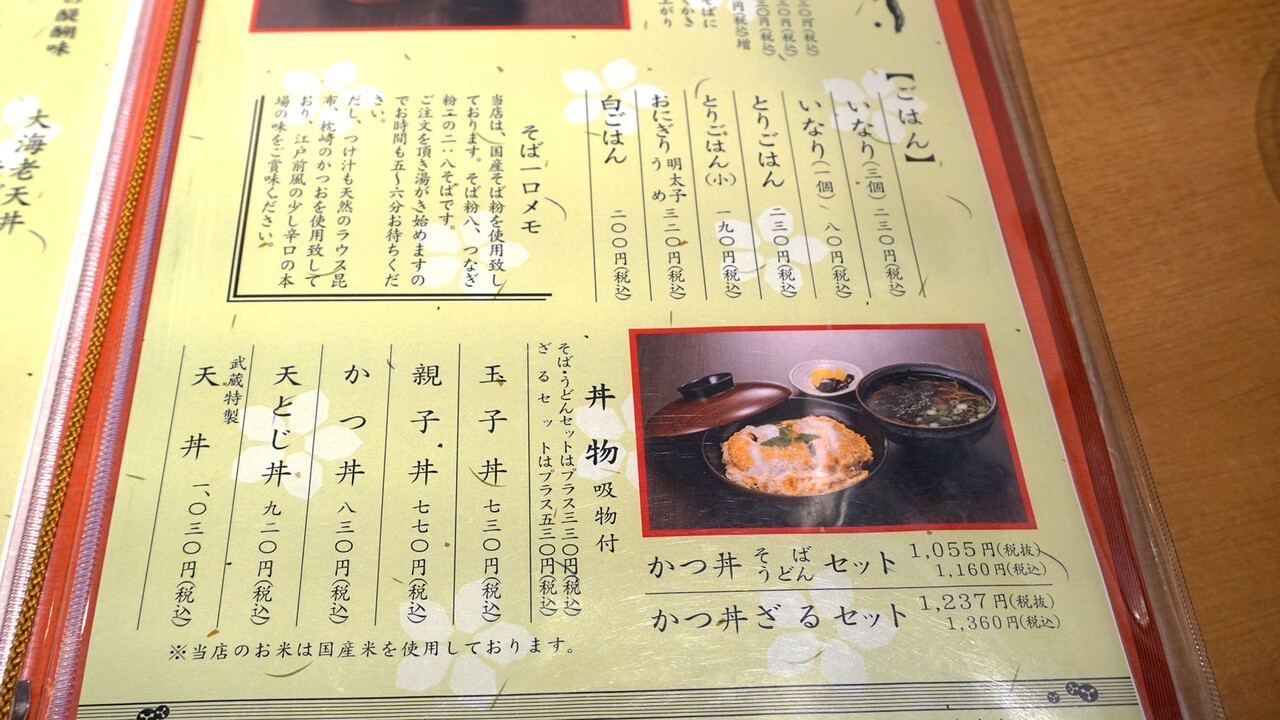 醍醐味
大海老天丼
【ごはん】
いなり(三個) 二三〇円(税込)
いなり(一個) 八〇円(税込)
とりごはん 二三〇円(税込)
とりごはん(小) 一九〇円(税込)
おにぎり 明太子 うめ 三二〇円(税込)
白ごはん 二〇〇円(税込)
そば一口メモ
当店は、国産そば粉を使用致し
ております。そば粉八、つなぎ
粉二の二・八そばです。
ご注文を頂き湯がき始めますの
でお時間も五〜六分お待ちくだ
さい。
だし、つけ汁も天然のラウス昆
布、枕崎のかつおを使用致して
おり、江戸前風の少し辛口の本
場の味をご賞味ください。
丼物 吸物付
そば・うどんセットはプラス三三〇円(税込)
ざるセットはプラス五三〇円(税込)
玉子丼 七三〇円(税込)
親子丼 七七〇円(税込)
かつ丼 八三〇円(税込)
天とじ丼 九二〇円(税込)
武蔵特製
天丼 一、〇三〇円(税込)
かつ丼 そば うどん セット 1,055円(税抜)
1,160円(税込)
かつ丼ざるセット 1,237円(税抜)
1,360円(税込)
※当店のお米は国産米を使用しております。